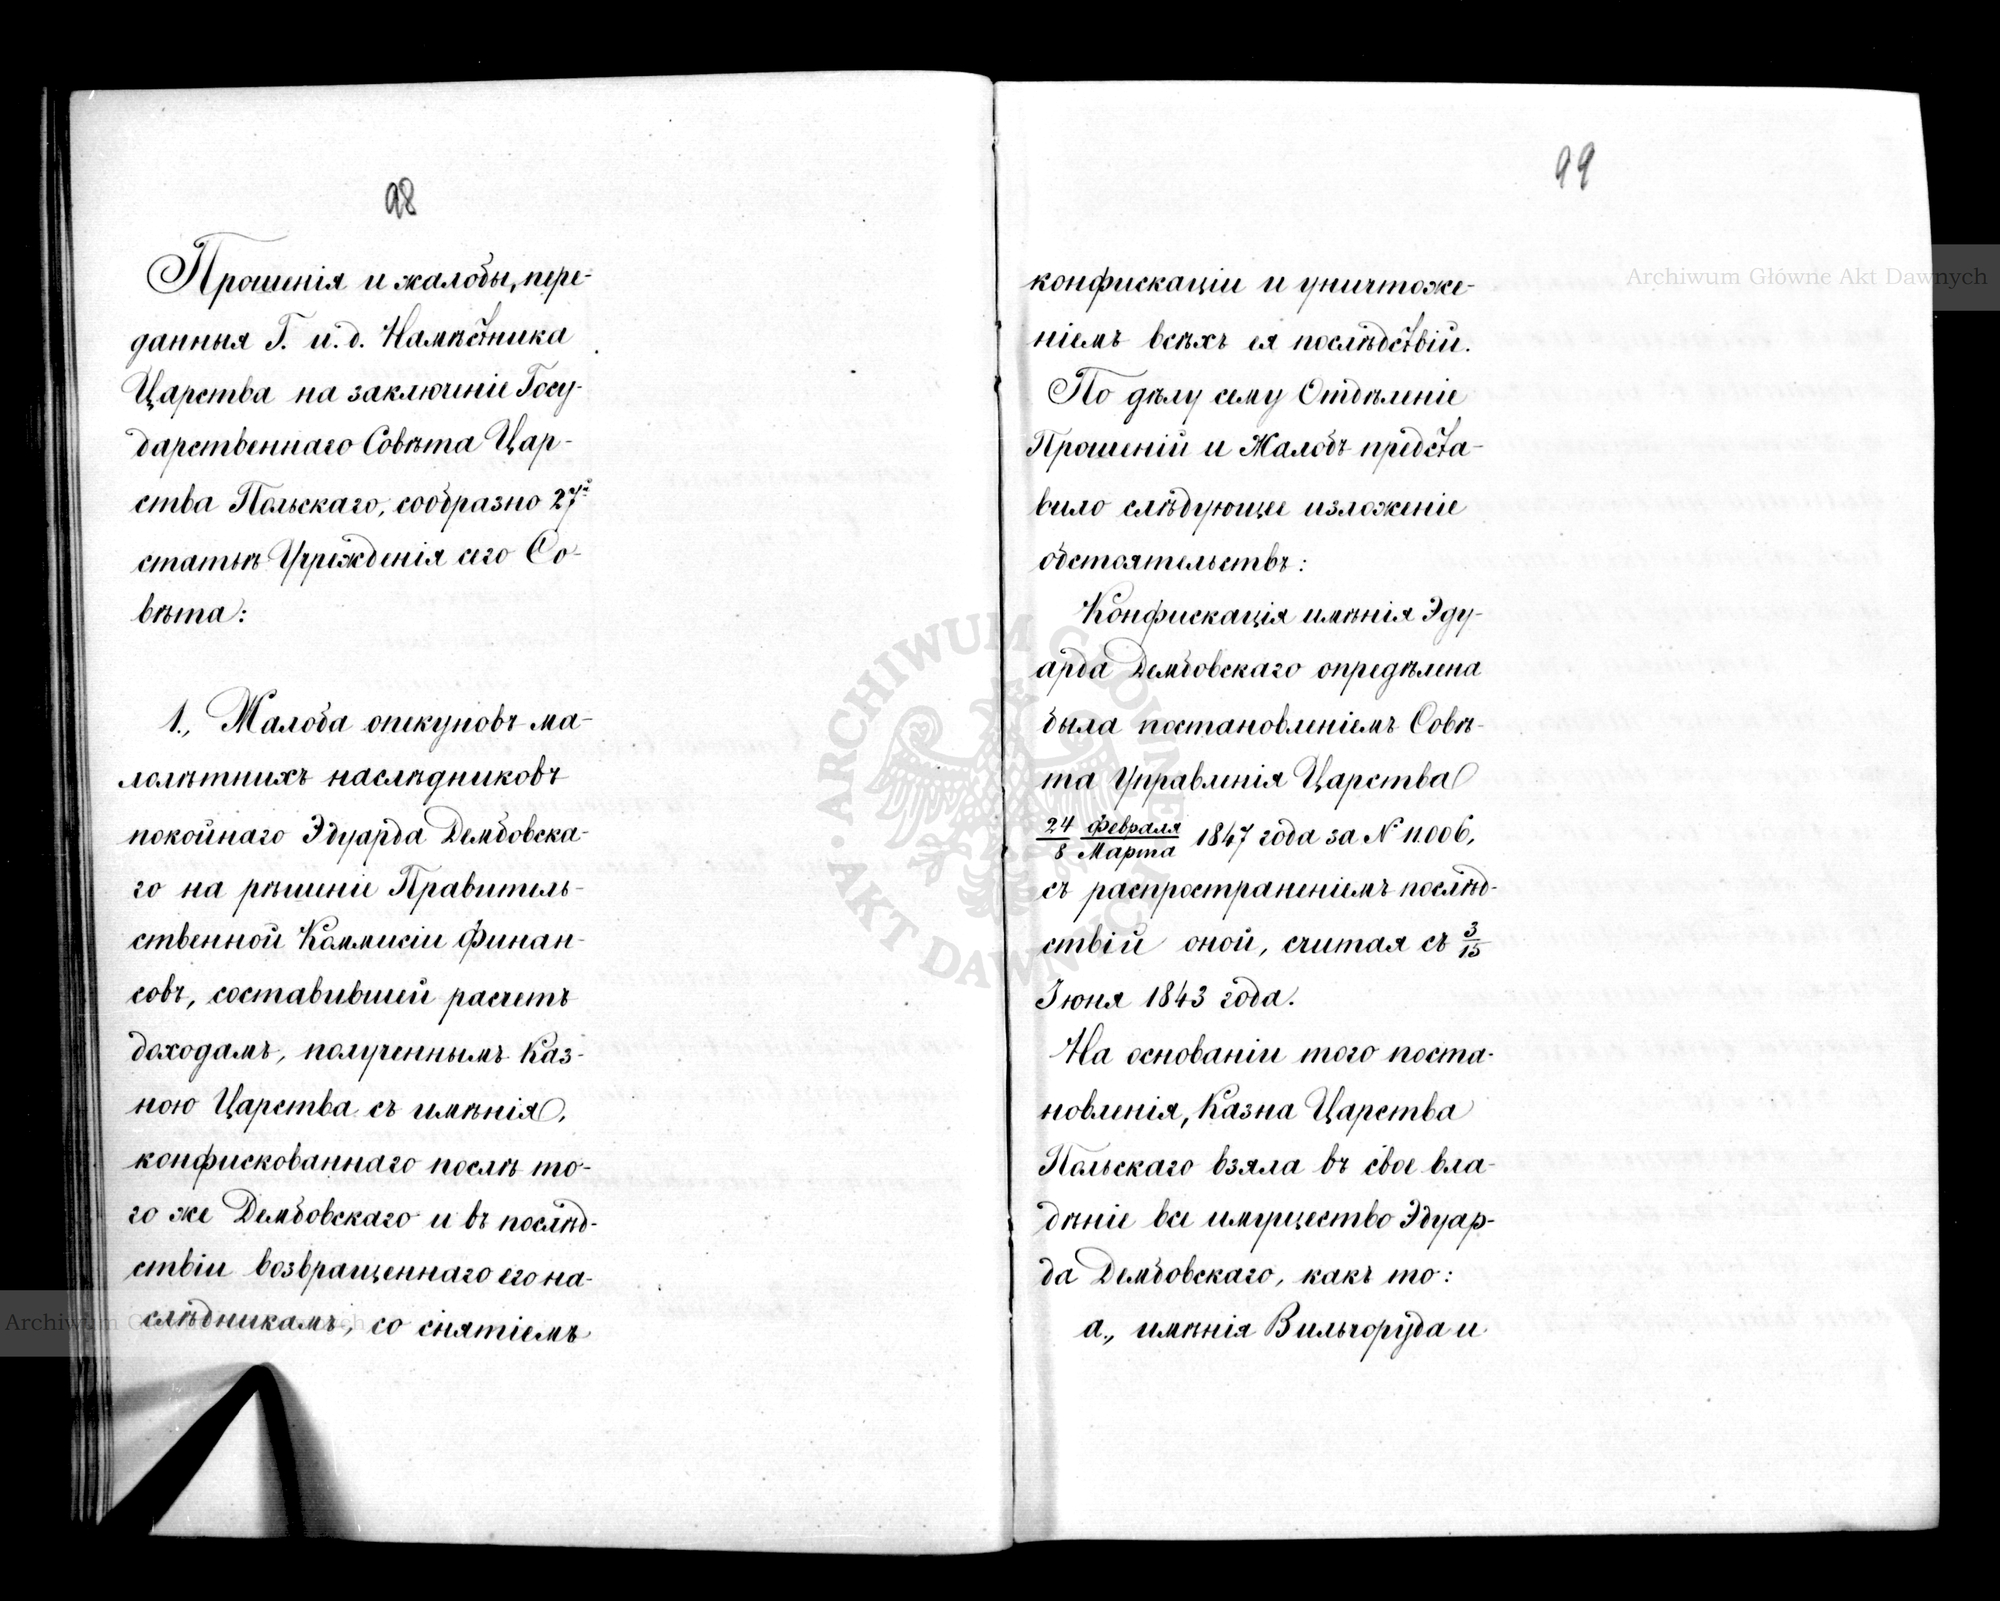 98
Прошенія и жалобы, пере-
данныя Г. и. д. Намѣстника
Царства на заключеніе Госу-
дарственнаго Совѣта Цар-
ства Польскаго, сообразно 27й
статьѣ Учрежденія сего Со-
вѣта:
1., Жалоба опекуновъ ма-
лолѣтнихъ наслѣдниковъ
покойнаго Эдуарда Дембовска-
го на рѣшеніе Правитель-
ственной Коммисіи Финан-
совъ, составившей расчетъ
доходамъ, полученнымъ Каз-
ною Царства съ имѣнія,
конфискованнаго послѣ то-
го же Дембовскаго и въ послѣд-
ствіи возвращеннаго его на-
слѣдникамъ, со снятіемъ
99
конфискаціи и уничтоже-
ніемъ всѣхъ ея послѣдствій.
По дѣлу сему Отдѣленіе
Прошеній и Жалобъ предста-
вило слѣдующее изложеніе
обстоятельствъ:
Конфискація имѣнія Эду-
арда Дембовскаго опредѣлена
была постановленіемъ Совѣ-
та Управленія Царства
24/8 Февраля/Марта 1847 года за № 11.006,
съ распространеніемъ послѣд-
ствій оной, считая съ 3/15
Іюня 1843 года.
На основаніи того поста-
новленія, Казна Царства
Польскаго взяла въ свое вла-
дѣніе все имущество Эдуар-
да Дембовскаго, какъ то:
а., имѣнія Вильгоруда и
Archiwum Główne Akt Dawnych
Archiwum Główne Akt Dawnych
ARCHIWUM GŁÓWNE AKT DAWNYCH